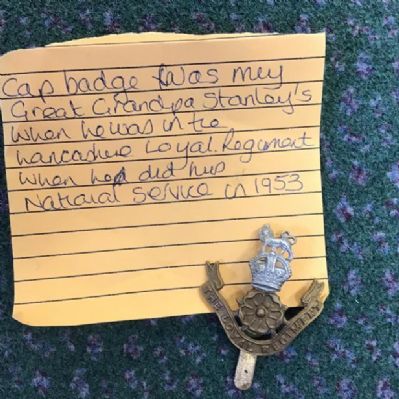 Cap badge was my
Great Grandpa Stanley's
when he was in the
Lancashire Loyal Regiment
when he did his
National Service in 1953